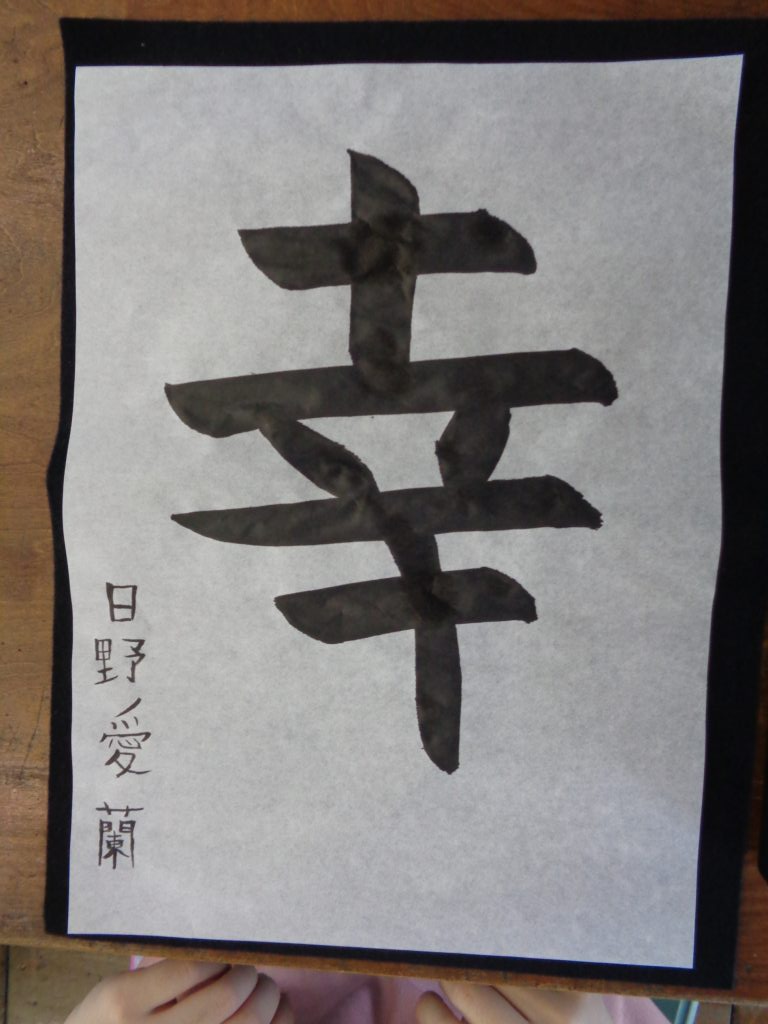 幸
日野愛蘭